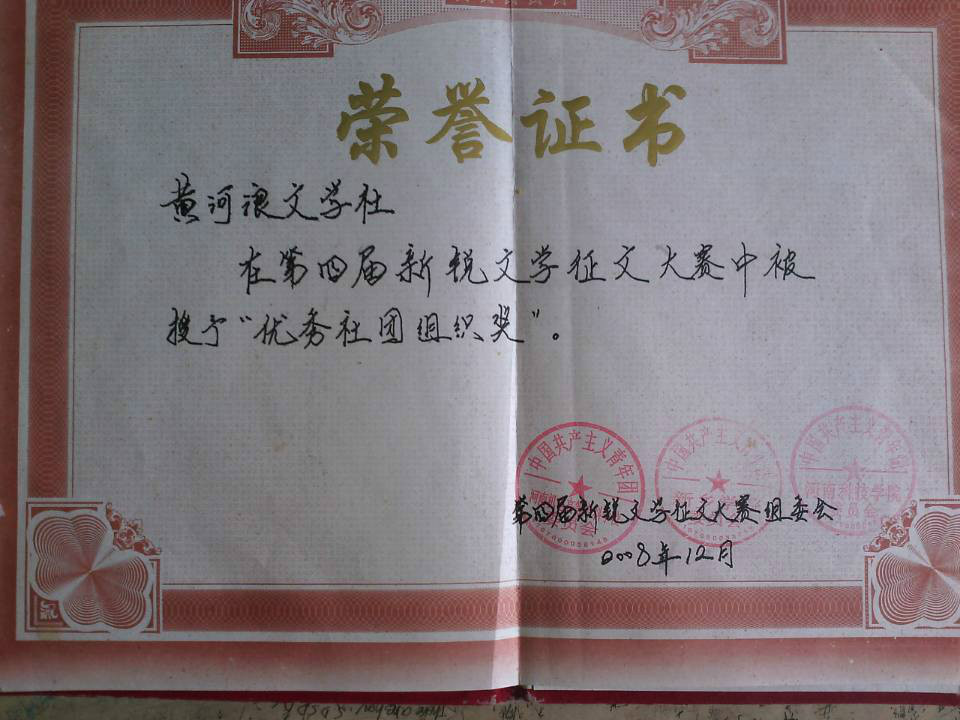 荣誉证书
黄河浪文学社
在第四届新锐文学征文大赛中被
授予“优秀社团组织奖”。
中国共产主义青年团
中国共产主义青年团
中国共产主义青年团
河南科技学院
委员会
第四届新锐文学征文大赛组委会
2008年12月